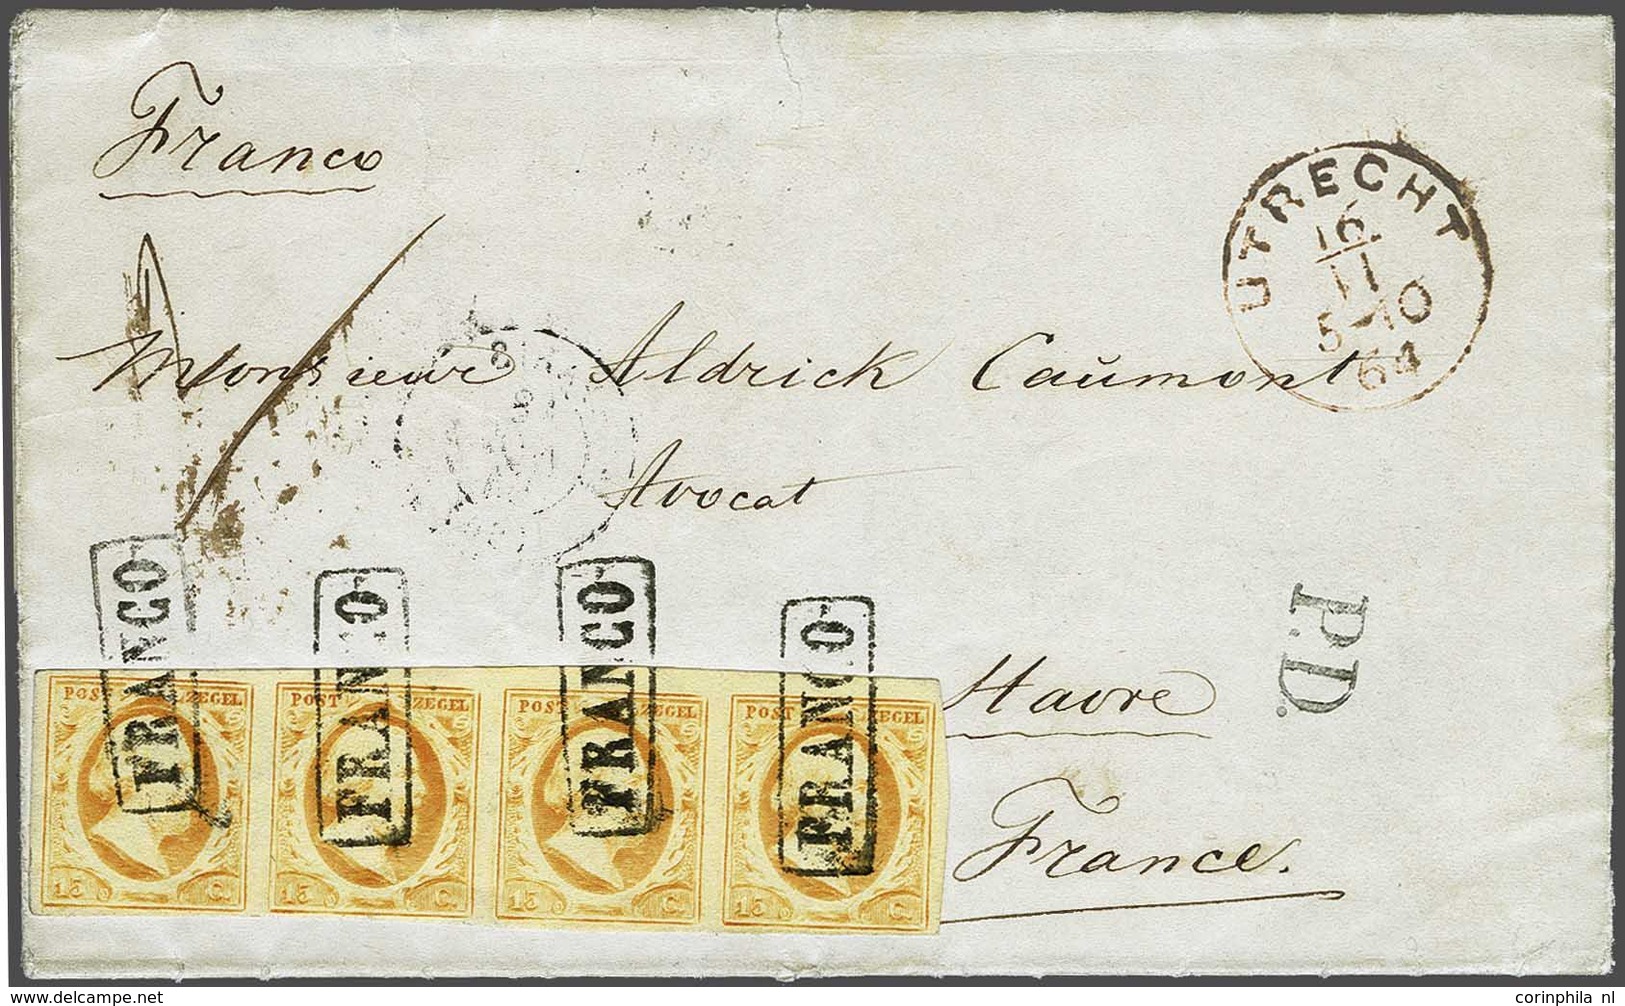 Franco
UTRECHT
16
11
5-10
64
Monsieur Aldrick Caŭmont
Avocat
FRANCO
FRANCO
FRANCO
FRANCO
P.D.
Havre
France.
POST ZEGEL
POST ZEGEL
POST ZEGEL
POST ZEGEL
15 C.
15 C.
15 C.
15 C.
© delcampe.net
corinphila nl